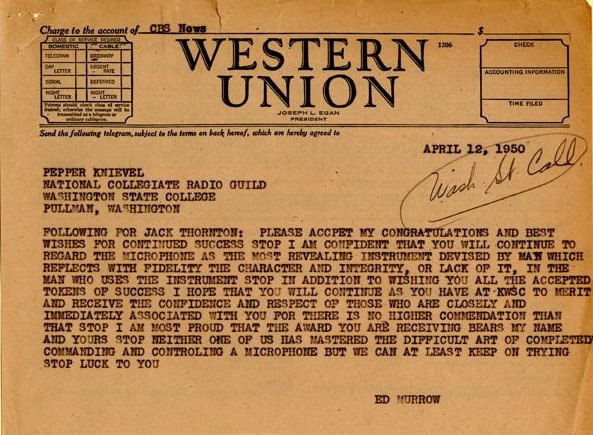 Charge to the account of CBS News $
CLASS OF SERVICE DESIRED
DOMESTIC CABLE
TELEGRAM ORDINARY
DAY LETTER URGENT RATE
SERIAL DEFERRED
NIGHT LETTER NIGHT LETTER
Patrons should check class of service desired; otherwise the message will be transmitted as a telegram or ordinary cablegram.
WESTERN
UNION
1206
JOSEPH L. EGAN
PRESIDENT
CHECK
ACCOUNTING INFORMATION
TIME FILED
Send the following telegram, subject to the terms on back hereof, which are hereby agreed to
APRIL 12, 1950
Wash. St. Call.
PEPPER KNIEVEL
NATIONAL COLLEGIATE RADIO GUILD
WASHINGTON STATE COLLEGE
PULLMAN, WASHINGTON
FOLLOWING FOR JACK THORNTON: PLEASE ACCPET MY CONGRATULATIONS AND BEST
WISHES FOR CONTINUED SUCCESS STOP I AM CONFIDENT THAT YOU WILL CONTINUE TO
REGARD THE MICROPHONE AS THE MOST REVEALING INSTRUMENT DEVISED BY MAN WHICH
REFLECTS WITH FIDELITY THE CHARACTER AND INTEGRITY, OR LACK OF IT, IN THE
MAN WHO USES THE INSTRUMENT STOP IN ADDITION TO WISHING YOU ALL THE ACCEPTED
TOKENS OF SUCCESS I HOPE THAT YOU WILL CONTINUE AS YOU HAVE AT KWSC TO MERIT
AND RECEIVE THE CONFIDENCE AND RESPECT OF THOSE WHO ARE CLOSELY AND
IMMEDIATELY ASSOCIATED WITH YOU FOR THERE IS NO HIGHER COMMENDATION THAN
THAT STOP I AM MOST PROUD THAT THE AWARD YOU ARE RECEIVING BEARS MY NAME
AND YOURS STOP NEITHER ONE OF US HAS MASTERED THE DIFFICULT ART OF COMPLETED
COMMANDING AND CONTROLING A MICROPHONE BUT WE CAN AT LEAST KEEP ON TRYING
STOP LUCK TO YOU
ED MURROW